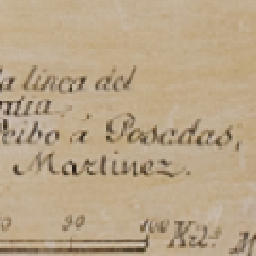 la linea del
ribo á Posadas,
Martinez.
0 90 100 Kil.s